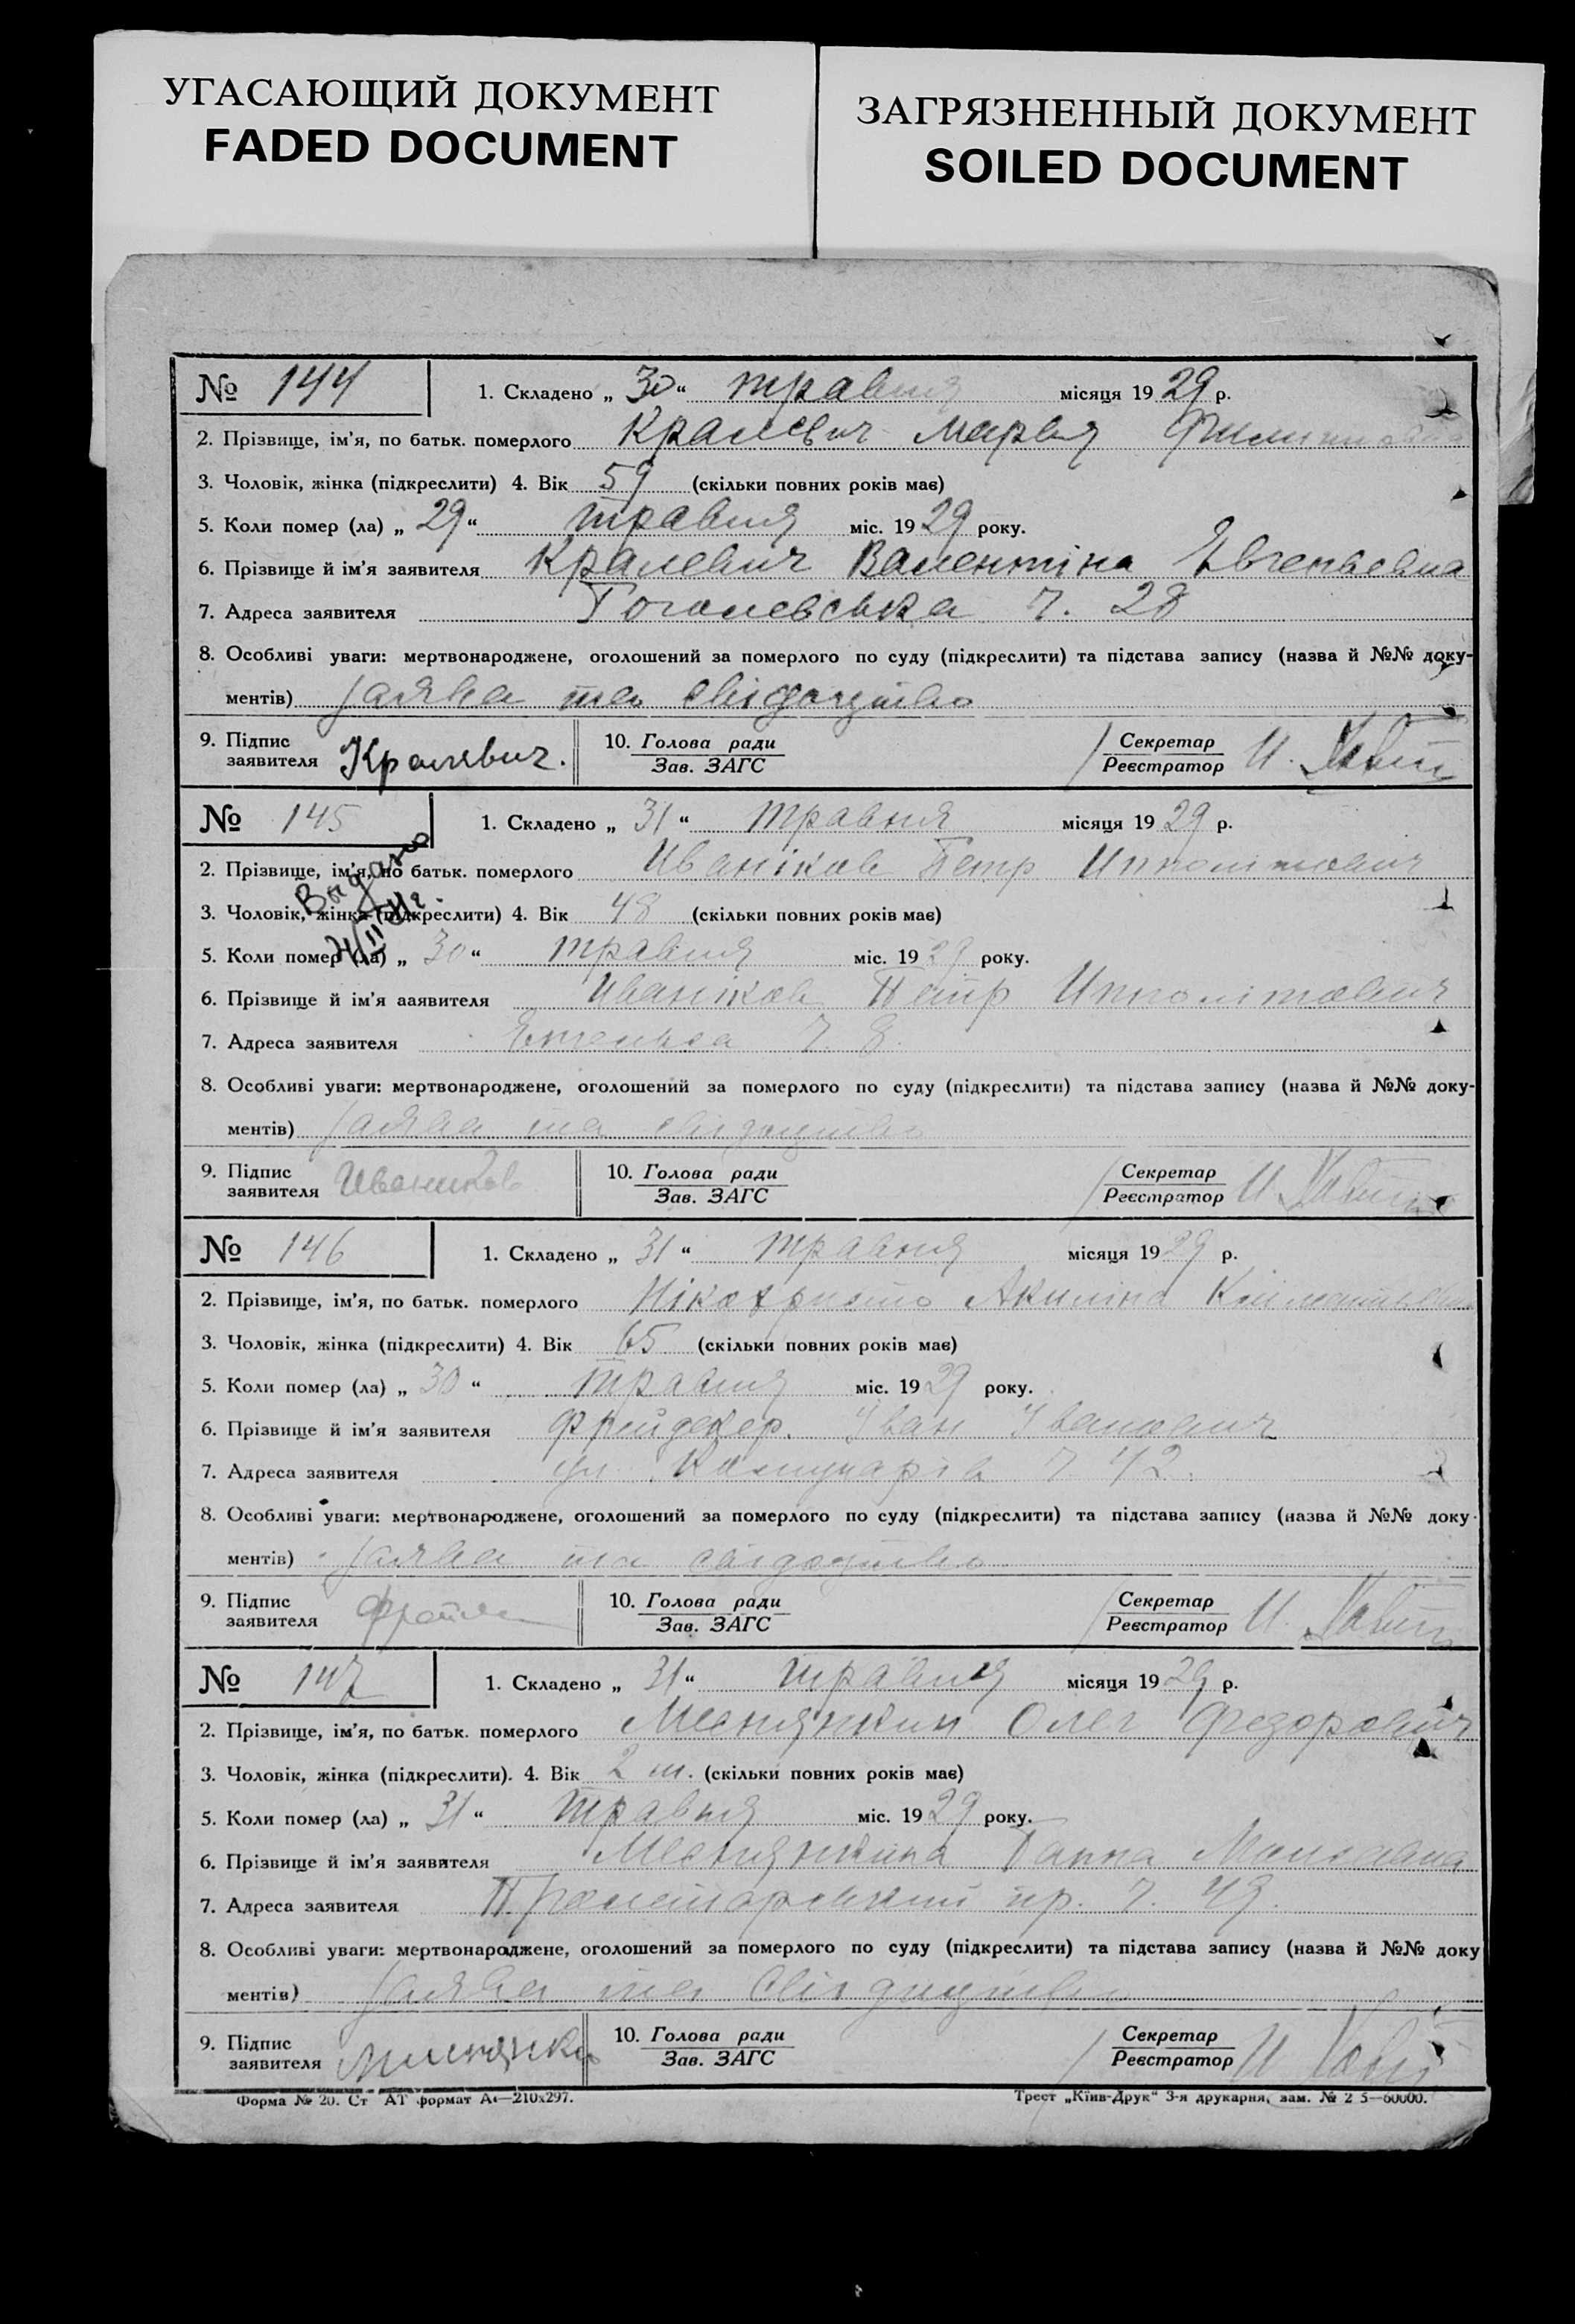 УГАСАЮЩИЙ ДОКУМЕНТ
FADED DOCUMENT
ЗАГРЯЗНЕННЫЙ ДОКУМЕНТ
SOILED DOCUMENT
№ 144 1. Складено „ 30 “ травня місяця 19 29 р.
2. Прізвище, ім'я, по батьк. померлого Кралевич Марья
3. Чоловік, жінка (підкреслити) 4. Вік 59 (скільки повних років має)
5. Коли помер (ла) „ 29 “ травня міс. 19 29 року.
6. Прізвище й ім'я заявителя Кралевич Валентіна Євгеньевна
7. Адреса заявителя Гоголевська ч. 28
8. Особливі уваги: мертвонароджене, оголошений за померлого по суду (підкреслити) та підстава запису (назва й №№ доку-
ментів) заява та свідоцтво
9. Підпис заявителя Кралевич. 10. Голова ради Зав. ЗАГС Секретар Реєстратор И.
№ 145 1. Складено „ 31 “ травня місяця 19 29 р.
Выдано
2. Прізвище, ім'я, по батьк. померлого Иваніков ПетрИпполітович
3. Чоловік, жінка (підкреслити) 4. Вік 48 (скільки повних років має)
5. Коли помер (ла) „ 30 “ травня міс. 19 29 року.
6. Прізвище й ім'я заявителя Иваніков Петр Ипполітович
7. Адреса заявителя ч. 8.
8. Особливі уваги: мертвонароджене, оголошений за померлого по суду (підкреслити) та підстава запису (назва й №№ доку-
ментів) заява та свідоцтво
9. Підпис заявителя Иваников 10. Голова ради Зав. ЗАГС Секретар Реєстратор И.
№ 146 1. Складено „ 31 “ травня місяця 19 29 р.
2. Прізвище, ім'я, по батьк. померлого Акиліна
3. Чоловік, жінка (підкреслити) 4. Вік 65 (скільки повних років має)
5. Коли помер (ла) „ 30 “ травня міс. 19 29 року.
6. Прізвище й ім'я заявителя Іван Іванович
7. Адреса заявителя ул. Комунарів ч 42.
8. Особливі уваги: мертвонароджене, оголошений за померлого по суду (підкреслити) та підстава запису (назва й №№ доку-
ментів) заява та свідоцтво
9. Підпис заявителя 10. Голова ради Зав. ЗАГС Секретар Реєстратор И.
№ 147 1. Складено „ 31 “ травня місяця 19 29 р.
2. Прізвище, ім'я, по батьк. померлого Меснянкин Олег Федорович
3. Чоловік, жінка (підкреслити). 4. Вік 2 м. (скільки повних років має)
5. Коли помер (ла) „ 31 “ травня міс. 19 29 року.
6. Прізвище й ім'я заявителя Меснянкина Ганна
7. Адреса заявителя Пролетарський пр. ч. 49.
8. Особливі уваги: мертвонароджене, оголошений за померлого по суду (підкреслити) та підстава запису (назва й №№ доку
ментів) заява та свідоцтво
9. Підпис заявителя 10. Голова ради Зав. ЗАГС Секретар Реєстратор И.
Форма № 20. Ст АТ формат А4—210х297. Трест „Київ-Друк“ 3-я друкарня, зам. № 2 5—60000.